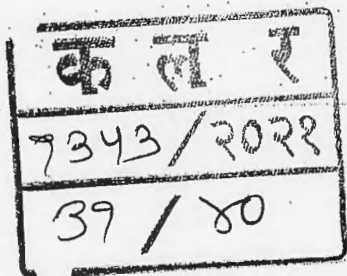 क ल र
१३५३/२०२१
३१/४०